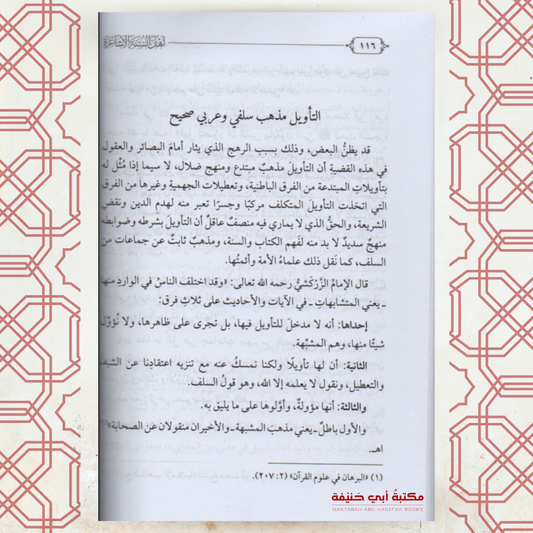 أهل السنة الأشاعرة
١١٦
التأويل مذهب سلفي وعربي صحيح
قد يظنُّ البعض، وذلك بسبب الرهج الذي يثار أمامَ البصائر والعقول
في هذه القضية أن التأويلَ مذهبٌ مبتدع ومنهج ضلال، لا سيما إذا مُثّل له
بتأويلاتِ المبتدعة من الفرق الباطنية، وتعطيلات الجهمية وغيرها من الفرق
التي اتخذت التأويلَ المتكلف مركبًا وجسرًا تعبر منه لهدمِ الدين ونقضِ
الشريعة، والحقُّ الذي لا يماري فيه منصفٌ عاقلٌ أن التأويلَ بشرطه وضوابطه
منهجٌ سديدٌ لا بد منه لفهم الكتاب والسنة، ومذهبٌ ثابتٌ عن جماعات من
السلف، كما نَقل ذلك علماءُ الأمة وأئمتُها.
قال الإمامُ الزَّرْكَشيُّ رحمه الله تعالى: «وقد اختلف الناسُ في الواردِ منها
ـ يعني المتشابهاتِ ـ في الآيات والأحاديث على ثلاثِ فرق:
إحداها: أنه لا مدخلَ للتأويل فيها، بل تجرى على ظاهرها، ولا نُؤوِّل
شيئًا منها، وهم المشبِّهة.
الثانية: أن لها تأويلًا ولكنا نمسكُ عنه مع تنزيه اعتقادِنا عن الشبه
والتعطيل، ونقول لا يعلمه إلا الله، وهو قولُ السلف.
والثالثة: أنها مؤولةٌ، وأوَّلوها على ما يليق به.
والأول باطلٌ ـ يعني مذهبَ المشبهة ـ والأخيران منقولان عن الصحابة»
اهـ.
(١) «البرهان في علوم القرآن» (٢: ٢٠٧).
مكتبة أبي حنيفة
MAKTABAH ABU HANEFAH BOOKS